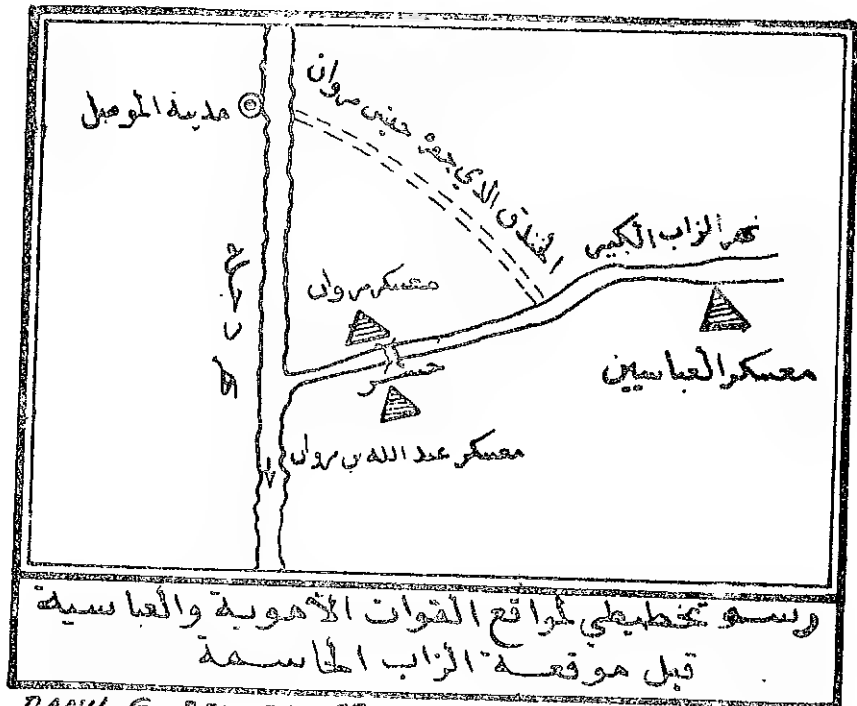 مدينة الموصل
الخندق الذي حفره جيش مروان
نهر الزاب الكبير
معسكر مروان
جسر
معسكر العباسيين
معسكر عبد الله بن مروان
رسم تخطيطي لمواقع القوات الأموية والعباسية
قبل موقعة الزاب الحاسمة